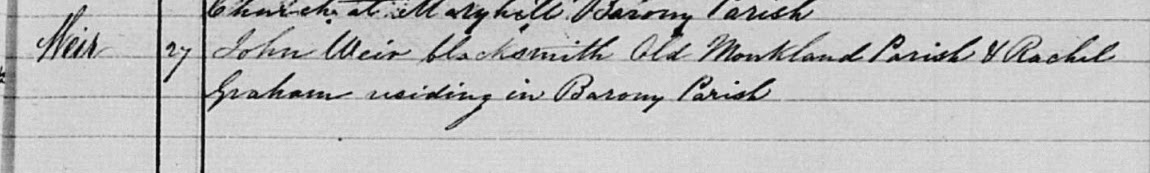 Church at Maryhill Barony Parish
Weir 27 John Weir blacksmith Old Monkland Parish & Rachel
Graham residing in Barony Parish